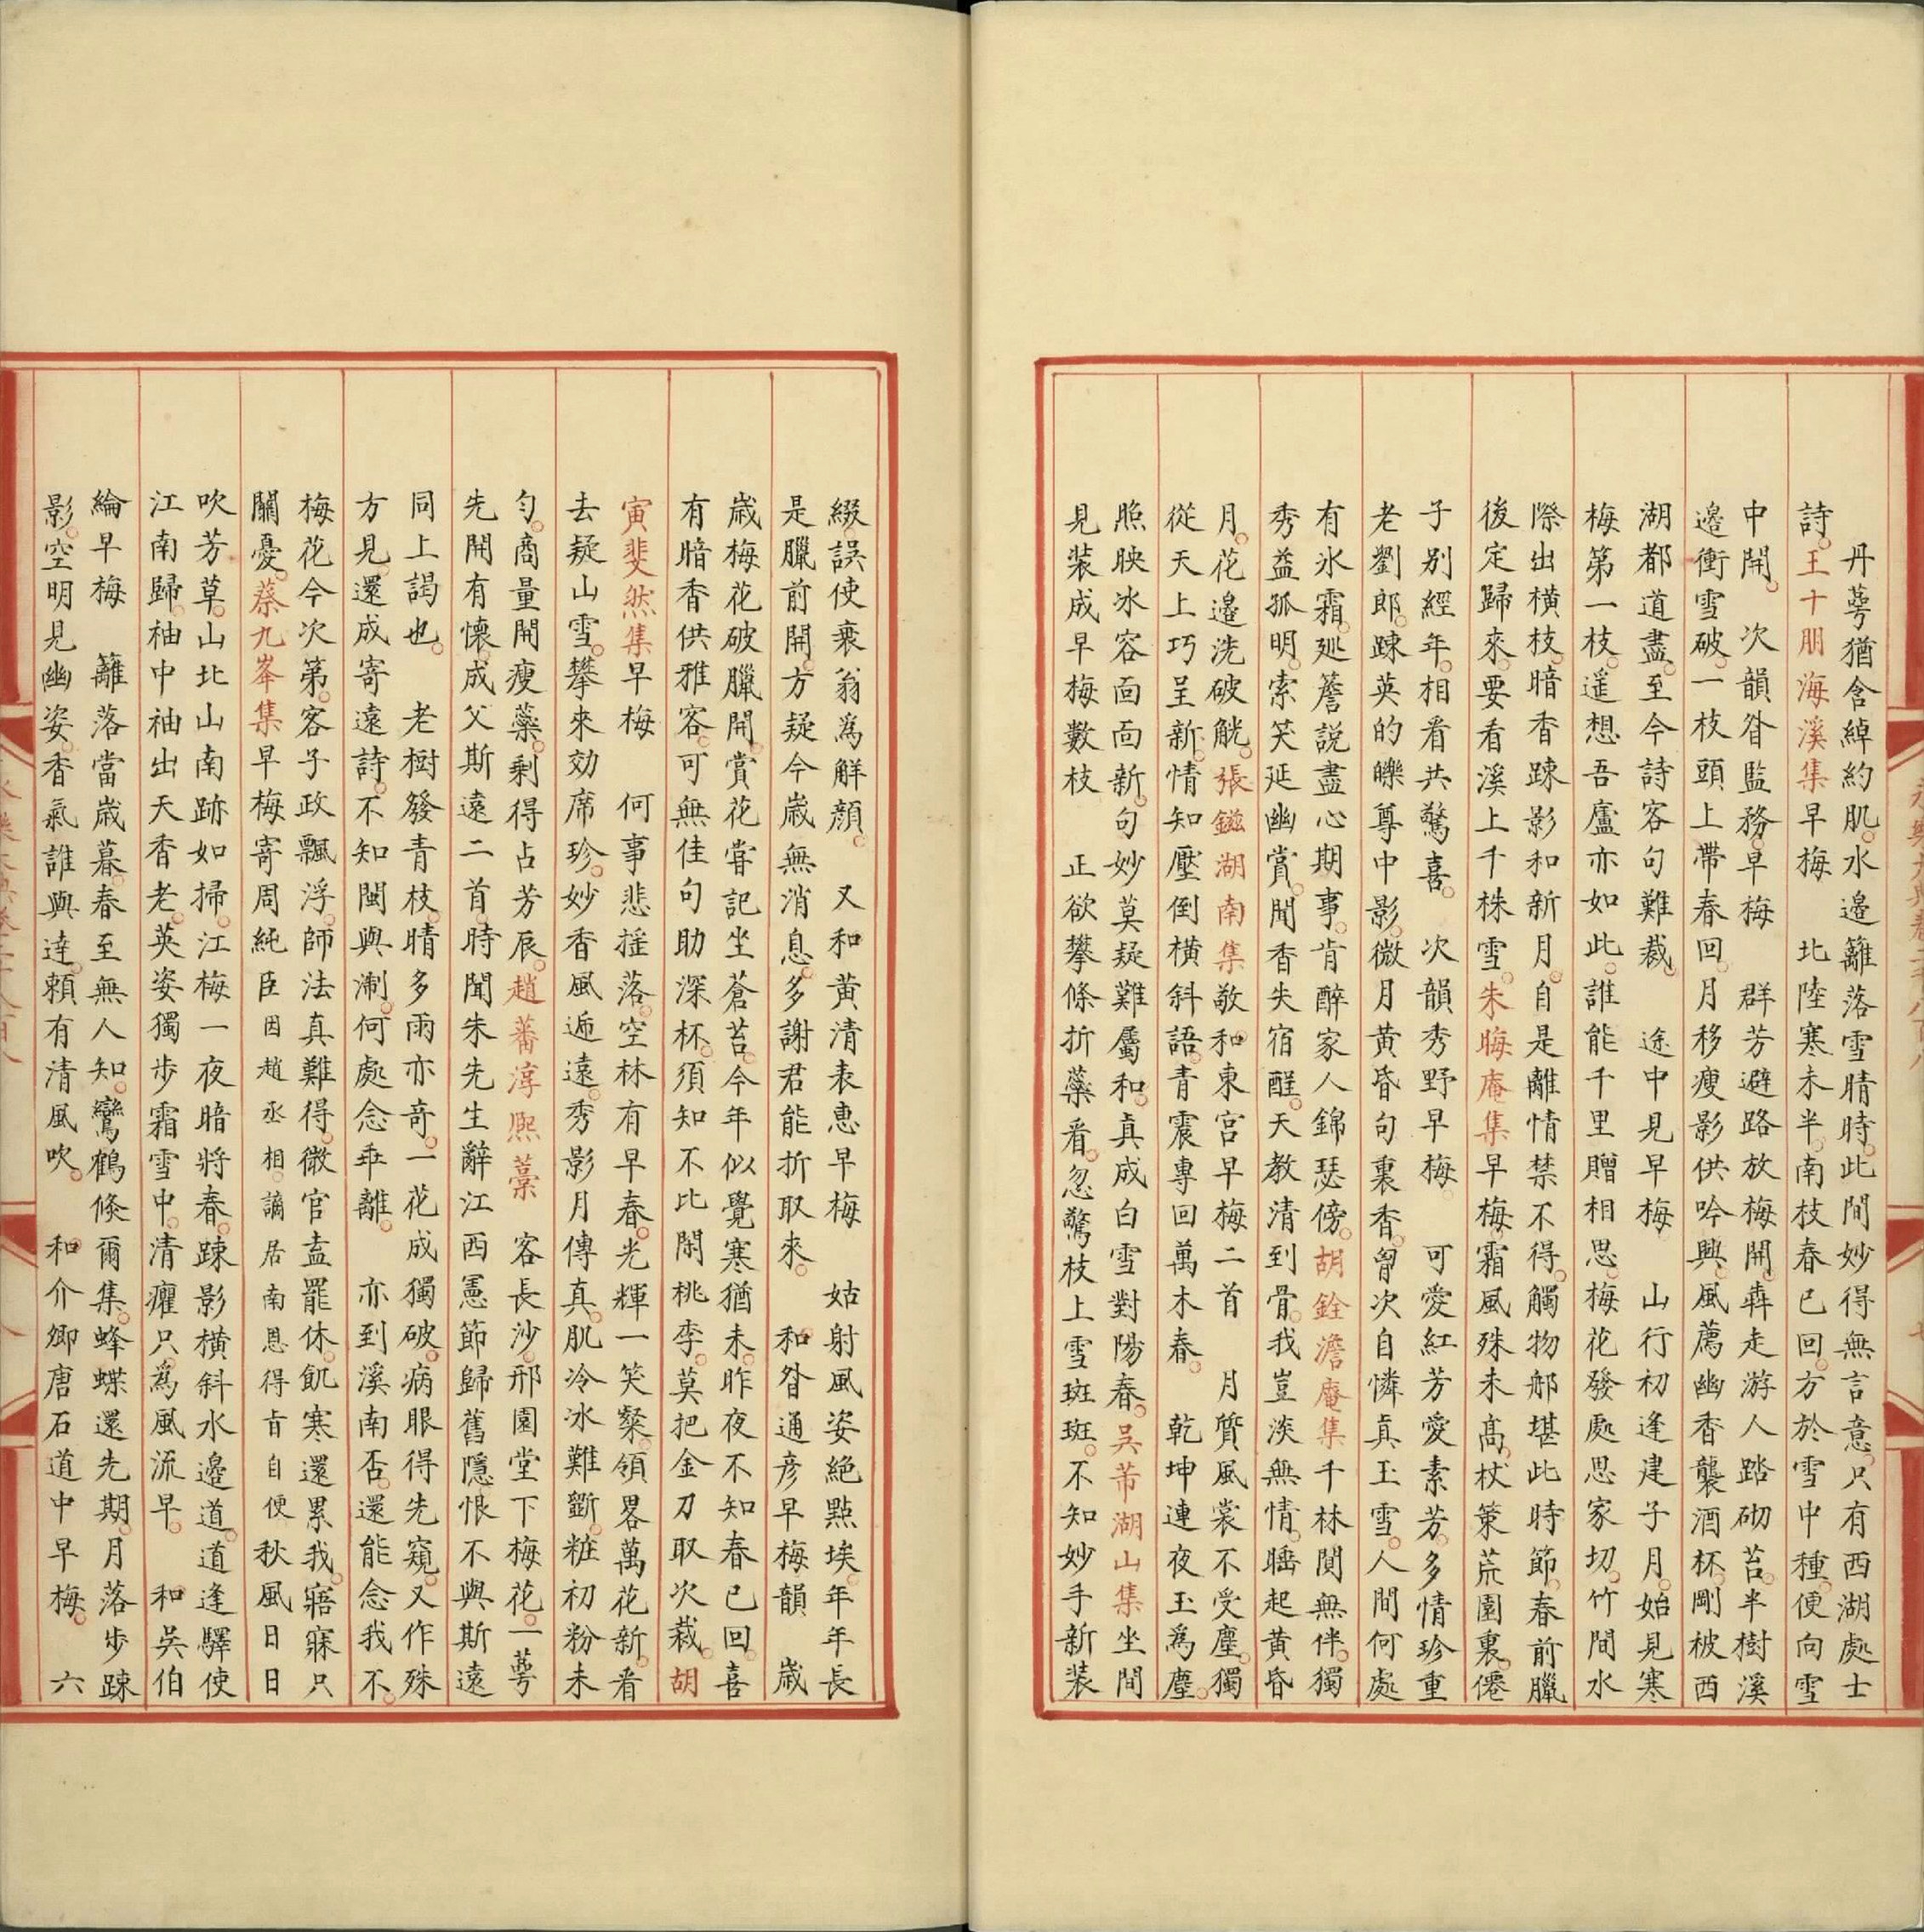 丹萼猶含綽約肌水邊籬落雪晴時此間妙得無言意只有西湖處士
詩王十朋海溪集早梅 北陸寒未半南枝春已回方於雪中種便向雪
中開 次韻昝監務早梅 群芳避路放梅開犇走游人踏砌苔半樹溪
邊衝雪破一枝頭上帶春回月移瘦影供吟興風薦幽香襲酒杯剛被西
湖都道盡至今詩客句難裁 途中見早梅 山行初逢建子月始見寒
梅第一枝遥想吾廬亦如此誰能千里贈相思梅花發處思家切竹間水
際出橫枝暗香踈影和新月自是離情禁不得觸物那堪此時節春前臘
後定歸來要看溪上千株雪朱晦庵集早梅霜風殊未高杖策荒園裏僊
子别經年相看共驚喜 次韻秀野早梅 可愛紅芳愛素芳多情珍重
老劉郎踈英的皪尊中影微月黄昏句裏香曾次自憐真玉雪人間何處
有氷霜廵簷說盡心期事肯醉家人錦瑟傍胡銓澹庵集千林閴無伴獨
秀益孤明索笑延幽賞聞香失宿酲天教清到骨我豈淡無情睡起黄昏
月花邊洗破觥張鎡湖南集敬和東宮早梅二首 月質風裳不受塵獨
從天上巧呈新情知壓倒橫斜語青震專回萬木春 乾坤連夜玉爲塵
照映冰容面面新句妙莫疑難屬和真成白雪對陽春吴芾湖山集坐間
見装成早梅數枝 正欲攀條折蘂看忽驚枝上雪斑斑不知妙手新装
綴誤使衰翁爲解顔 又和黄清表惠早梅 姑射風姿絶點埃年年長
是臘前開方疑今歳無消息多謝君能折取來 和昝通彦早梅韻 歳
歳梅花破臘開賞花甞記坐蒼苔今年似覺寒猶未昨夜不知春已回喜
有暗香供雅客可無佳句助深杯須知不比閑桃李莫把金刀取次裁胡
寅斐然集早梅 何事悲揺落空林有早春光輝一笑粲領畧萬花新看
去疑山雪攀來効席珍妙香風遞遠秀影月傳真肌冷冰難斵粧初粉未
匀商量開瘦蘂剩得占芳辰趙蕃淳熈藁 客長沙邢園堂下梅花一萼
先開有懷成父斯遠二首時聞朱先生辭江西憲節歸舊隱恨不與斯遠
同上謁也 老樹發青枝晴多雨亦奇一花成獨破病眼得先窺又作殊
方見還成寄遠詩不知閩與淛何處念乖離 亦到溪南否還能念我不
梅花今次第客子政飄浮師法真難得微官盍罷休飢寒還累我寤寐只
關憂蔡九峯集早梅寄周純臣因趙丞相謫居南恩得旨自便秋風日日
吹芳草山北山南跡如掃江梅一夜暗將春踈影橫斜水邊道道逢驛使
江南歸袖中袖出天香老英姿獨步霜雪中清癯只爲風流早 和吳伯
綸早梅 籬落當歳暮春至無人知鸞鶴倐爾集蜂蝶還先期月落步踈
影空明見幽姿香氣誰與逹頼有清風吹 和介卿唐石道中早梅 六